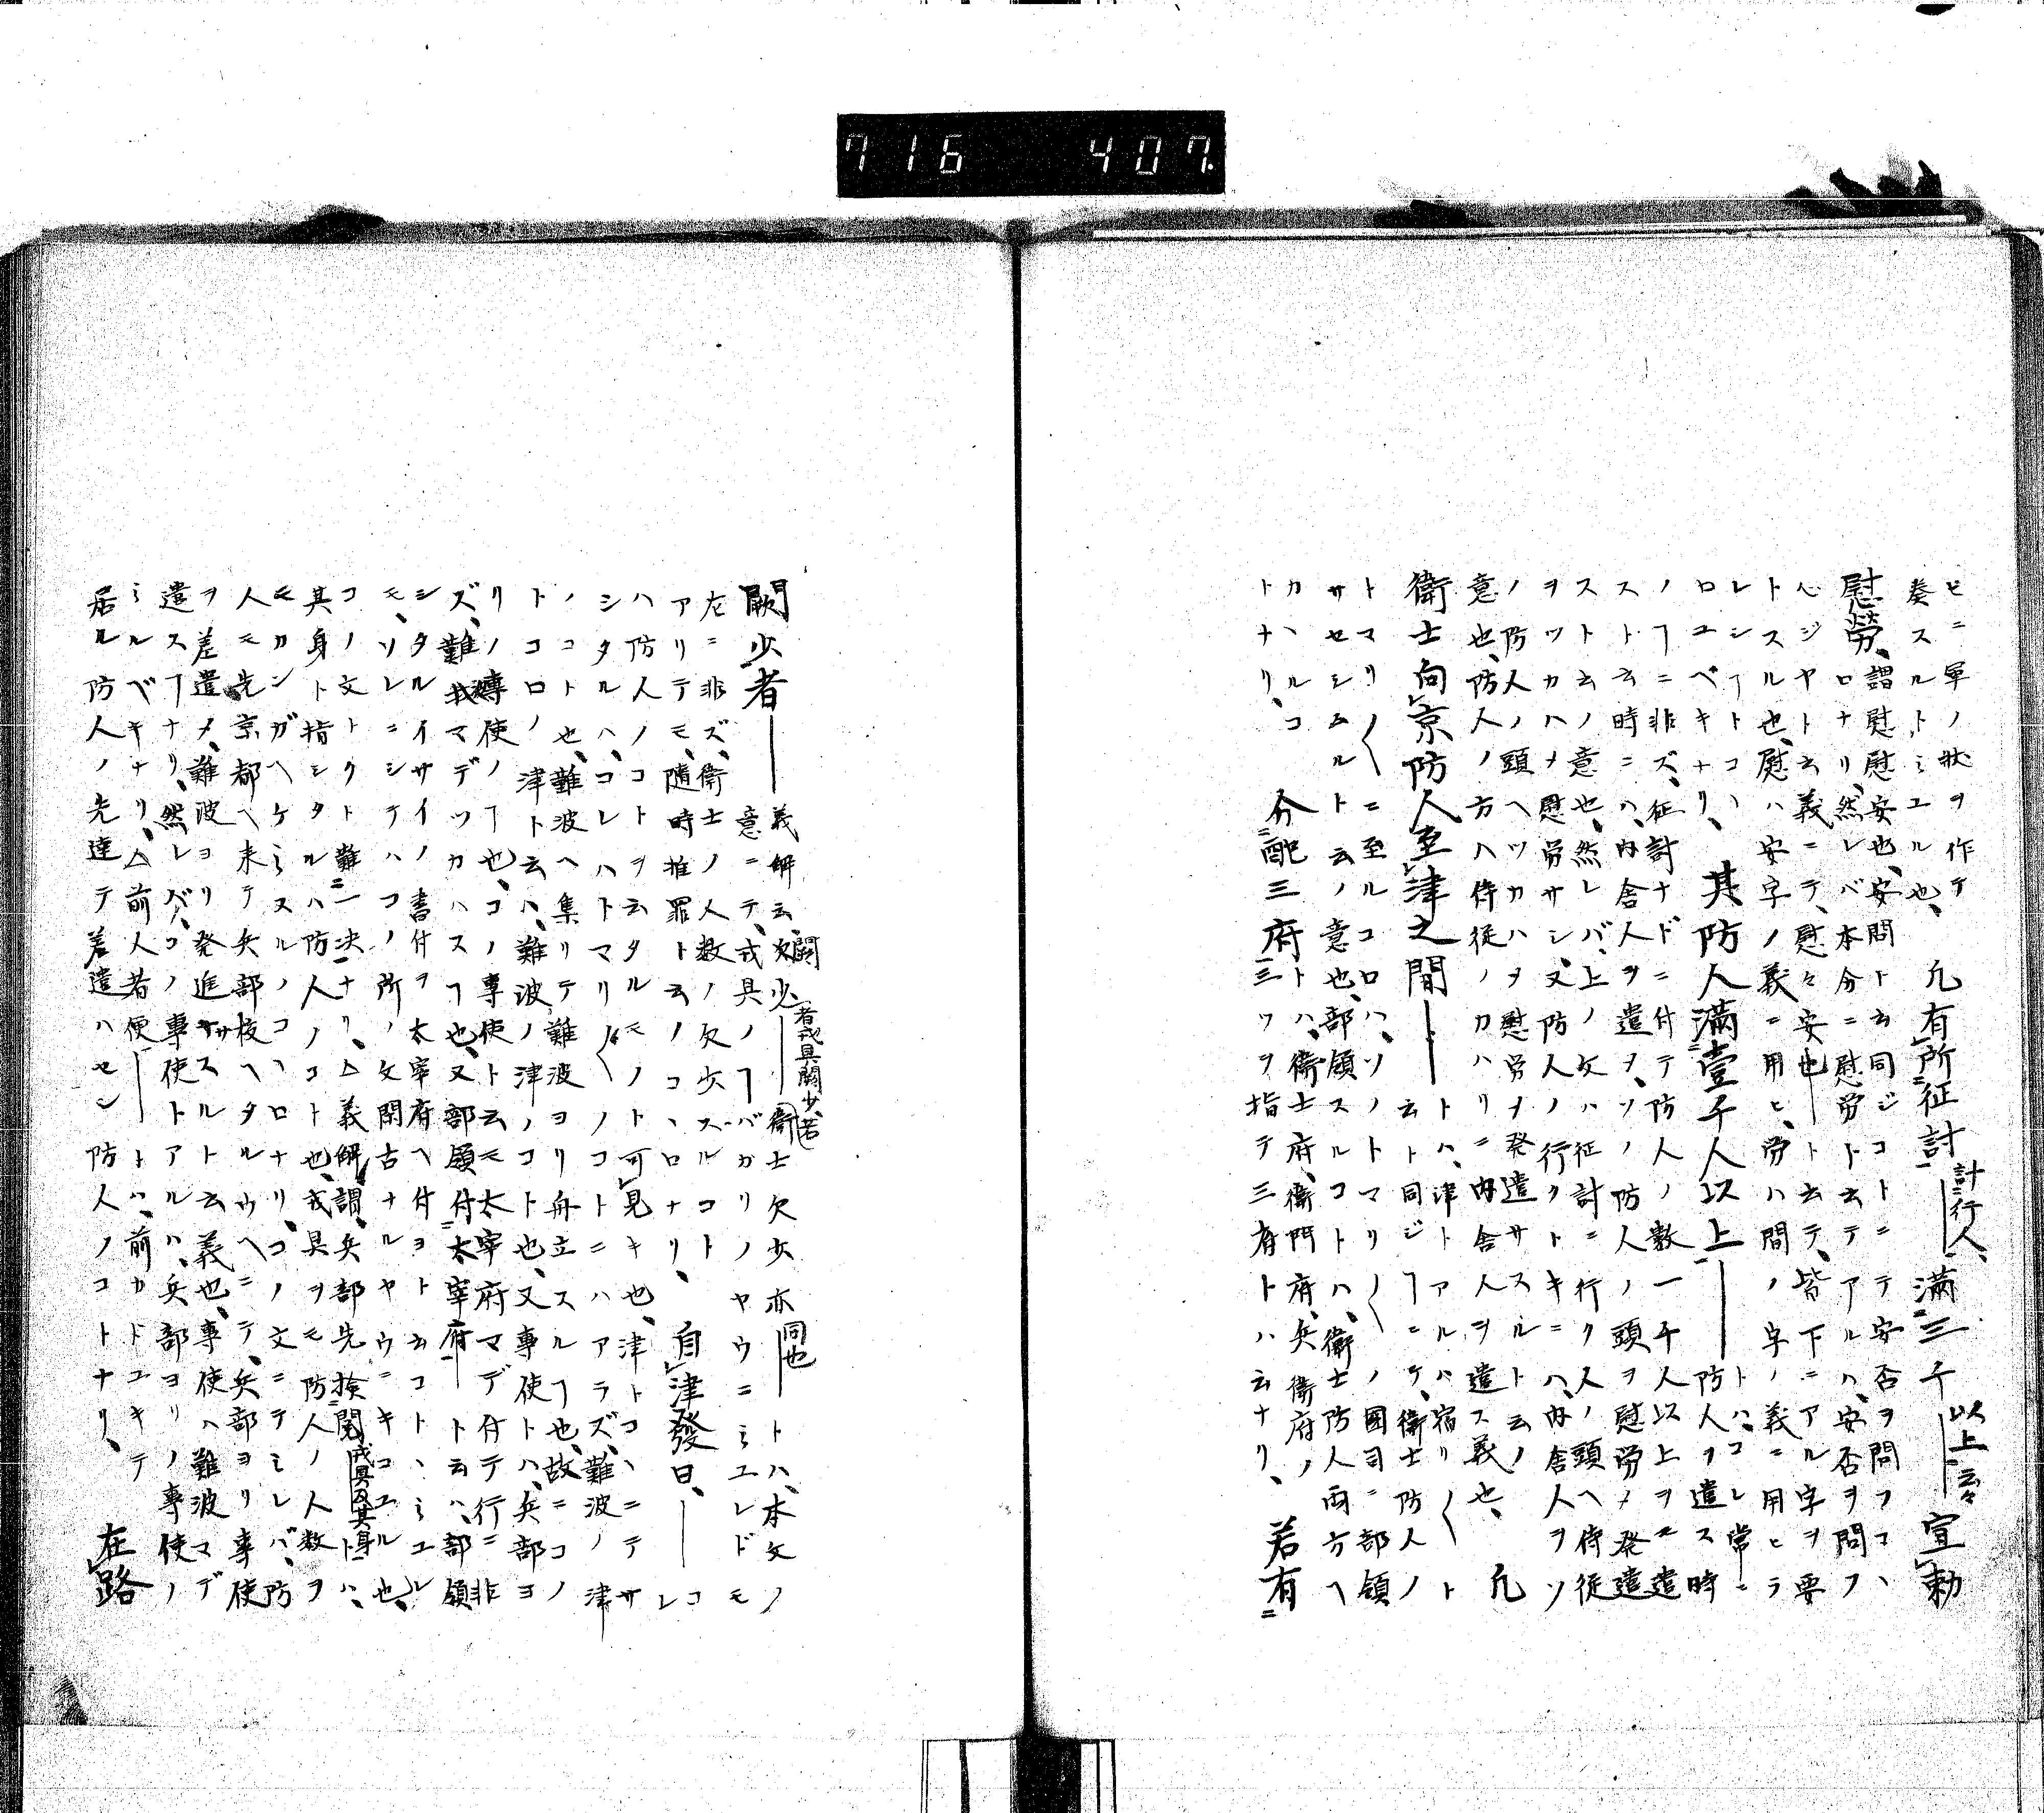 716 407.
ヒニ軍ノ状ヲ作テ
奏スルトミユル也、 凡有所征討 計行人、 満三千以上 云々 宣勅
慰勞、謂慰慰安也、安問ト云同ジコトニテ安否ヲ問フコ、
ロナリ、然レバ本分ニ慰労ト云テアルハ、安否ヲ問フ
心ジヤト云義ニテ、慰々安也ト云テ、皆下ニアル字ヲ要
トスル也、慰ハ安字ノ義ニ用ヒ、労ハ問ノ字ノ義ニ用ヒラ
レシフトコ、
ロユベキナリ、 其防人満壹千人以上 トハ、コレ常ニ
防人ヲ遣ス時
ノフニ非ズ、征討ナドニ付テ防人ノ数一千人以上ヲモ遣
スト云時ニハ、内舎人ヲ遣ヲ、ソノ防人ノ頭ヲ慰労メ発遣
ストノ意也、然レバ、上ノ文ハ征討ニ行ク人ノ頭ヘ侍従
ヲツカハメ慰労サシ、又防人ノ行クトキニハ、内舎人ヲソ
ノ防人ノ頭ヘツカハヲ慰労ヲ発遣サスルト云ノ
意也、防人ノ方ハ侍従ノカハリニ内舎人ヲ遣ス義也、 凡
衛士向京防人至津之間 トハ、津トアルハ宿リ〱ト
云ト同ジフニテ、衛士防人ノ
トマリ〱ニ至ルコロハ、ソノトマリ〱ノ國司ニ部領
サセシムルト云ノ意也、部領スルコトハ、衛士防人両方ヘ
カ、ルコ
トナリ、 分配三府 トハ、衛士府、衛門府、兵衛府ノ
三ツヲ指テ三府トハ云ナリ、 若有
闕少者 義解云、闕少者戎具闕少、若衛士欠少亦同也 トハ、本文ノ
意ニテ、戎具ノフバカリノヤウニミユレドモ
左ニ非ズ、衛士ノ人数ノ欠少スルコト
アリテモ、隨時推罪ト云ノコ、ロナリ、 自津發日、 コレ
ハ防人ノコトヲ云タルモノト可見キ也、津トコ、ニテサ
シタルハ、コレハトマリ〱ノコトニハアラズ、難波ノ津
ノコト也、難波ヘ集リテ難波ヨリ舟立スルフ也、故ニコノ
トコロノ津ト云ハ、難波ノ津ノコト也、又専使トハ、兵部ヨ
リノ専使ノフ也、コノ専使ト云モ太宰府マデ付テ行ニ非
ズ、難波マデツカハスフ也、又部領付太宰府 ト云ハ、部領
シタルイサイノ書付ヲ太宰府ヘ付ヨト云コト、ミユル
モ、ソレニシテハコノ所ノ文閑古ナルヤウニキコユル也、
コノ文トクト難一決ナリ、△義解謂、兵部先撿閲戎具及其身トハ、
其身ト指シタルハ防人ノコト也、戎具ヲモ防人ノ人数ヲ
モカンガヘケミスルノコ、ロナリ、コノ文ニテミレバ、防
人モ先京都ヘ来テ兵部校ヘタルウヘニテ、兵部ヨリ専使
ヲ差遣メ、難波ヨリ発進サスルト云義也、専使ハ難波マデ
遣スフナリ、然レバ、コノ専使トアルハ、兵部ヨリノ専使ノ
ミルベキナリ、△前人者便 トハ、前カドユキテ
居ル防人ノ先達テ差遣ハセシ防人ノコトナリ、 在路